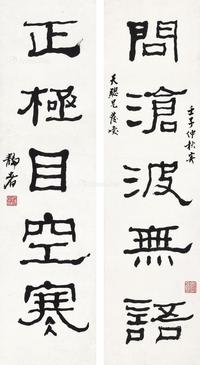 問滄波無語
正極目空寒
天聰兄茂叜
壬子仲秋
靜者